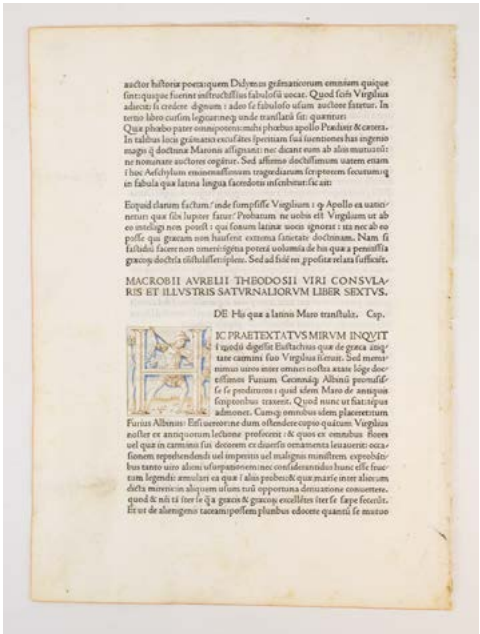 auctor historiæ poeta: quem Didymus grãmaticorum omnium quique
sint: quique fuerint instructissimus fabulosũ uocat. Quod sciẽs Virgilius
adiecit: si credere dignum: adeo se fabuloso usum auctore fatetur. In
tertio libro cuisim legitur: neq; unde translatũ sit: quæritur:
Quæ phœbo pater omnipotens: mihi phœbus apollo Prædixit & cætera.
In talibus locis grãmatici excusãtes suã ingenio
magis q̃ doctrinæ Maronis assignant: nec dicunt eum ab aliis mutuatũ:
ne nominare auctores cogãtur. Sed affirmo doctissimum uatem etiam
ĩ hoc Aeschylum eminentissimum tragœdiarum scriptorem secutum: q
in fabula quæ latina lingua sacerdotis inscribitur: sic ait:
Ecquid clarum factum: inde sumpsisse Virgilium: q Apollo ea uatici-
netur: quæ sibi Iupiter fatur: Probatum ne uobis est Virgilium ut ab
eo intelligi non potest: qui sonum latinæ uocis ignorat: ita nec ab eo
posse qui græcam non hauserit extrema satietate doctrinam. Nam si
fastidiũ facere non timerẽ: uolumia de his quæ a penitissima
græcoꝝ doctrĩa Sed ad fidẽ rei relata sufficiẽt.
MACROBII AVRELII THEODOSII VIRI CONSVLA-
RIS ET ILLVSTRIS SATVRNALIORVM LIBER SEXTVS.
DE His quæ a latinis Maro transtulit. Cap.
H IC PRAETEXTATVS MIRVM INQVIT
ĩ modũ digessit Eustachius quæ de græca ãtiq-
tate carmini suo Virgilius ĩseruit. Sed memi-
nimus uiros inter omnes nostra ætate lõge doc-
tissimos Furium Cecinnãq; Albinũ promisis-
se se prodituros: quid idem Maro de antiquis
scriptoribus traxerit. Quod nunc ut fiat: tẽpus
admonet. Cumq; omnibus idem placeret: tum
Furius Albinus: Etsi uereor: ne dum ostendere cupio quãtum Virgilius
noster ex antiquorum lectione profecerit: & quos ex omnibus flores
uel quæ in carminis sui decorem ex diuersis ornamenta leuauerit: occa-
sionem reprehendendi uel imperitis uel malignis ministrem: exprobrãti-
bus tanto uiro alieni usurpationem: nec considerantibus hunc esse fruc-
tum legendi: æmulari ea quæ ĩ aliis probes: & quæ maxime inter aliorum
dicta mireris: in aliquem usum tuũ opportuna deriuatione conuertere.
quod & nr̃i tã ĩter se q̃ a græcis & græcoꝝ excellẽtes ĩter se sæpe fecerũt.
Et ut de alienigenis taceam: possem pluribus edocere quantũ se mutuo